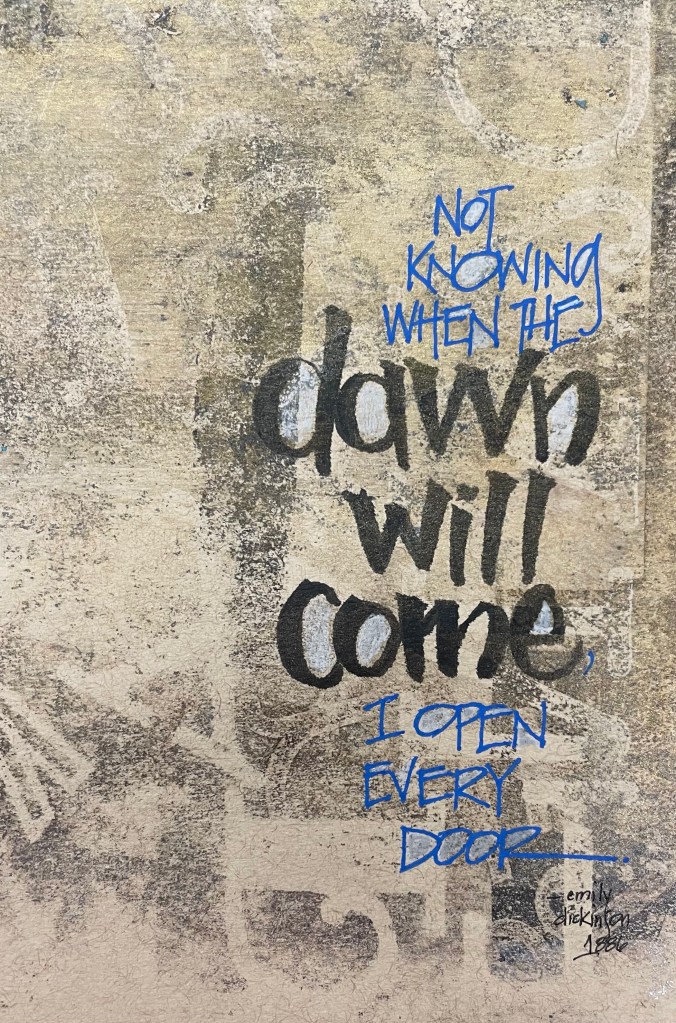 NOT
KNOWING
WHEN THE
dawn
will
come,
I OPEN
EVERY
DOOR.
— emily
dickinson
1886